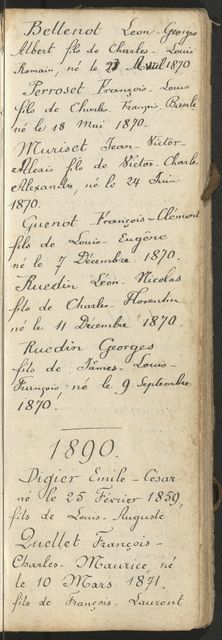 Bellenot Léon-Georges
Albert fils de Charles-Louis
Romain, né le 27 Avril 1870
Perroset François-Louis
fils de Charles François Basile
né le 18 Mai 1870.
Muriset Jean-Victor-
Alexis fils de Victor-Charles
Alexandre, né le 24 Juin
1870.
Guenot François-Clément
fils de Louis-Eugène
né le 7 Décembre 1870.
Ruedin Léon-Nicolas
fils de Charles-Florentin
né le 11 Décembre 1870
Ruedin Georges
fils de James-Louis-
François né le 9 Septembre
1870.
1890.
Digier Emile-Cesar
né le 25 Février 1859,
fils de Louis-Auguste
Quellet François-
Charles-Maurice, né
le 10 Mars 1871,
fils de François-Laurent